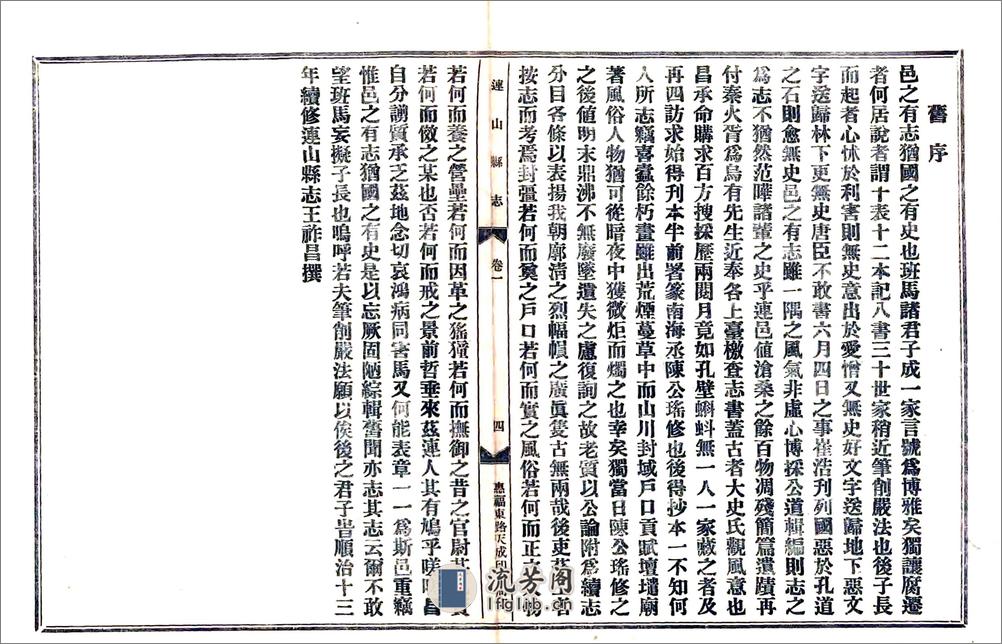 舊序
邑之有志猶國之有史也班馬諸君子成一家言號爲博雅矣獨讓腐遷
者何居說者謂十表十二本記八書三十世家稍近筆削嚴法也後子長
而起者心怵於利害則無史意出於愛憎又無史好文字送歸地下惡文
字送歸林下更無史唐臣不敢書六月四日之事崔浩刋列國惡於孔道
之石則愈無史邑之有志雖一隅之風氣非虛心博採公道輯編則志之
爲志不猶然范曄諸輩之史乎連邑値滄桑之餘百物凋殘簡篇遺蹟再
付秦火胥爲烏有先生近奉各上臺檄查志書蓋古者大史氏觀風意也
昌承命購求百方搜採歷兩閱月竟如孔壁蝌蚪無一人一家藏之者及
再四訪求始得刋本半前署篆南海丞陳公瑤修也後得抄本一不知何
人所志竊喜蠧餘朽畫雖出荒煙蔓草中而山川封域戶口貢賦壇壝廟
著風俗人物猶可從暗夜中獲微炬而燭之也幸矣獨當日陳公瑤修之
之後値明末鼎沸不無廢墜遺失之慮復詢之故老質以公論附爲續志
分目各條以表揚我朝廓清之烈幅幀之廣眞隻古無兩哉後吏茲者
按志而考焉封疆若何而奠之戶口若何而實之風俗若何而正之物
連山縣志
卷一
四
惠福東路天成印
若何而養之營壘若何而因革之猺獞若何而撫御之昔之官尉其
若何而倣之某也否若何而戒之景前哲垂來茲連人其有鳩乎咲昌
自分譾質承乏茲地念切哀鴻病同害馬又何能表章一一爲斯邑重竊
惟邑之有志猶國之有史是以忘厥固陋綜輯舊聞亦志其志云爾不敢
望班馬妄擬子長也嗚呼若夫筆削嚴法願以俟後之君子旹順治十三
年續修連山縣志王祚昌撰
流芳阁
lfglib.cn